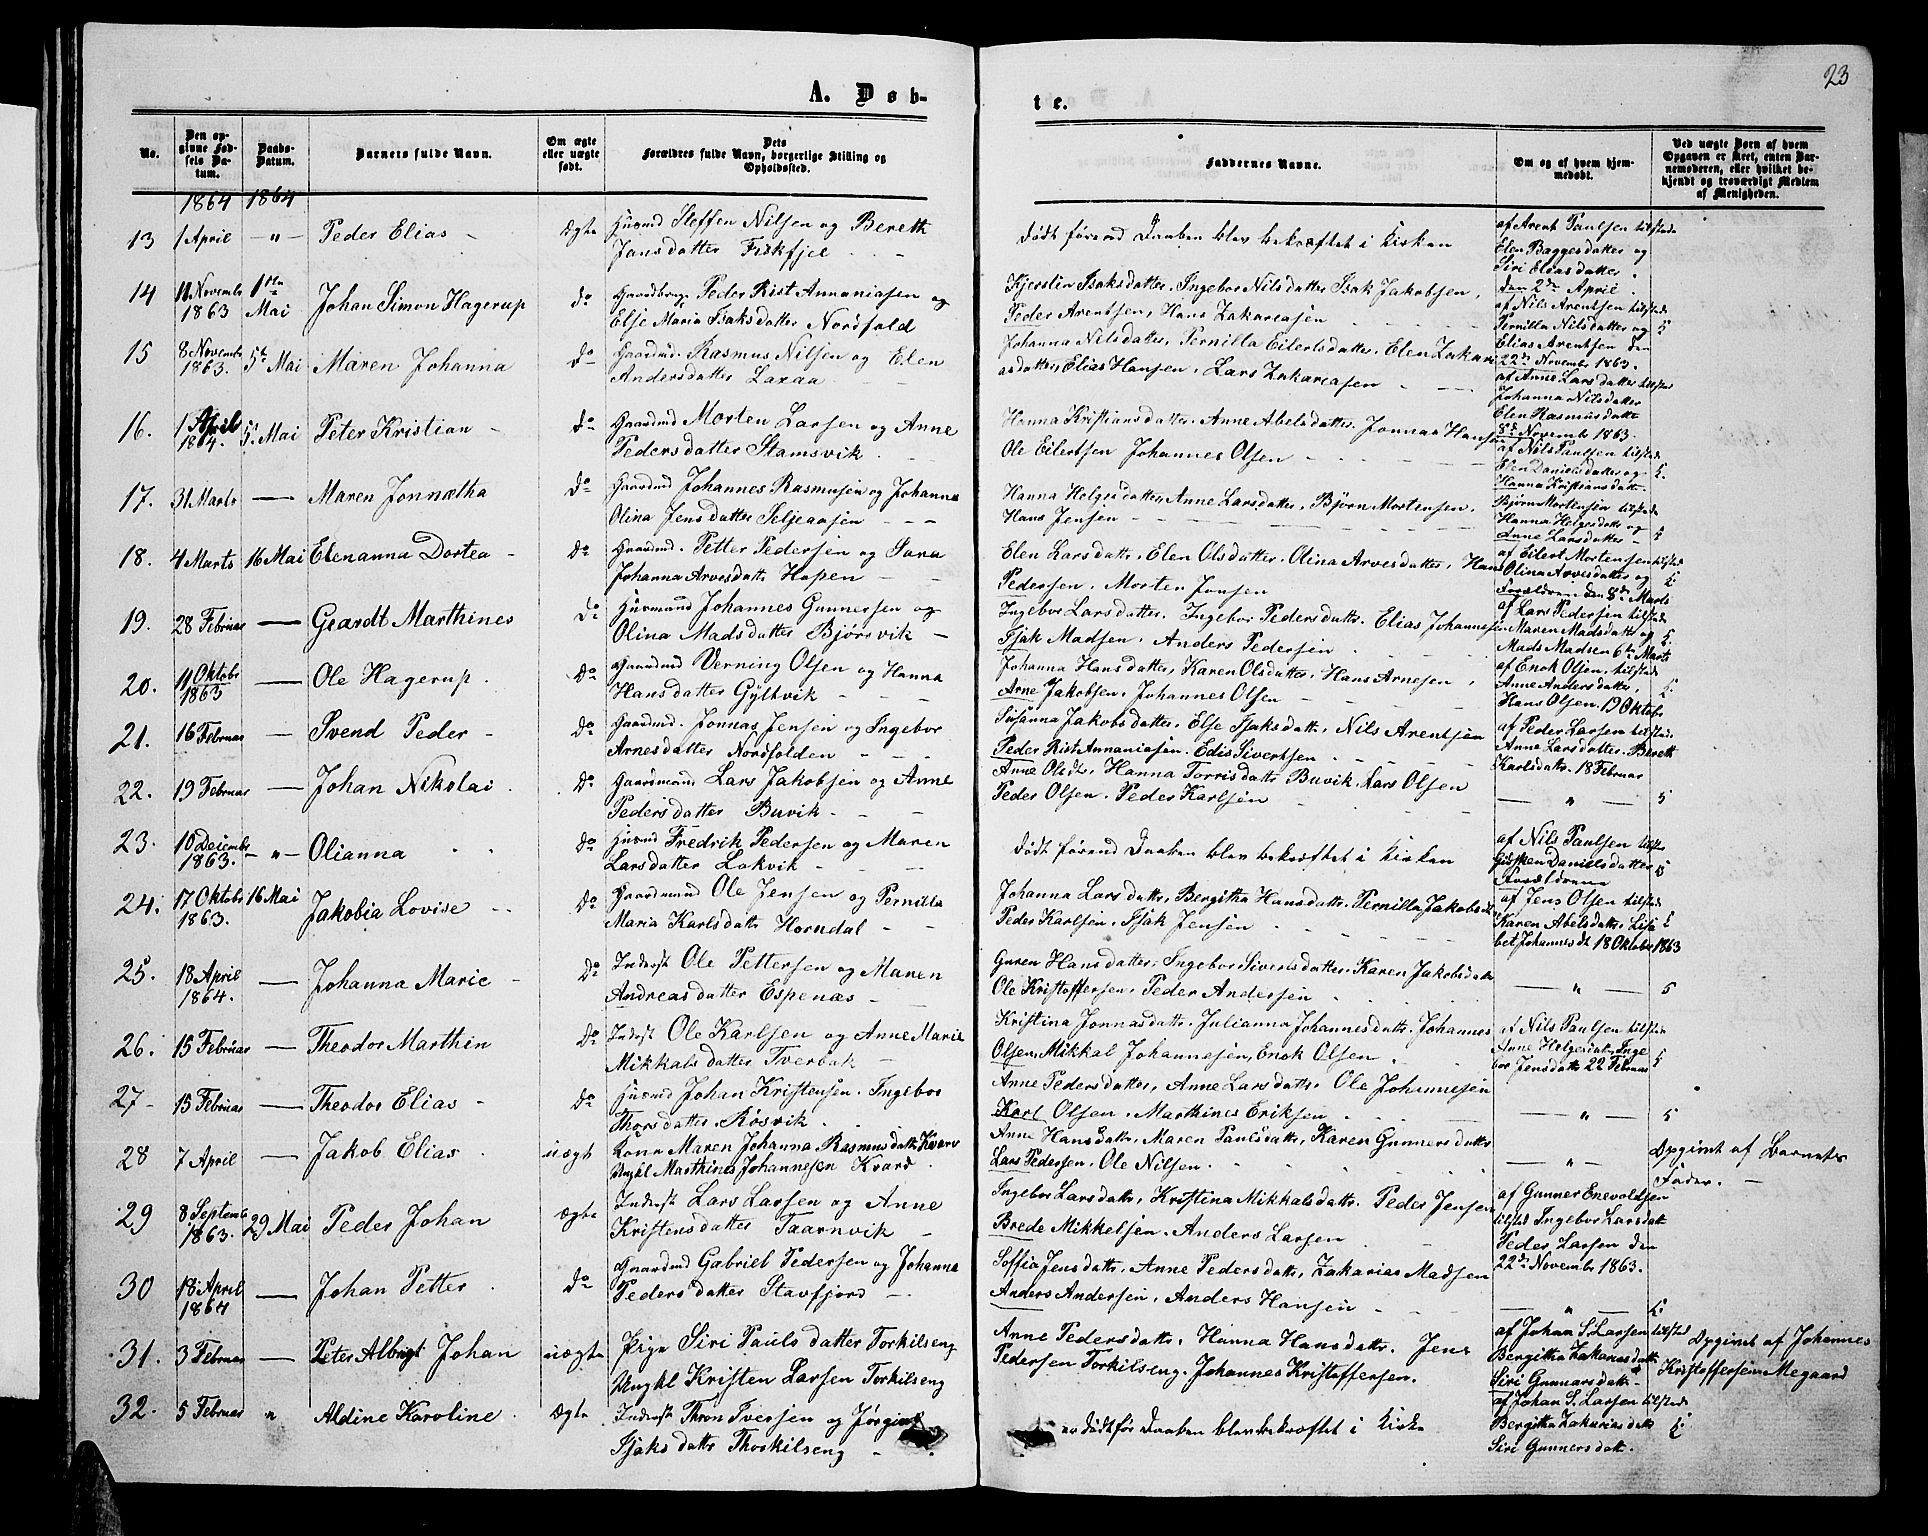 23
A. Døb-
te.
No.
Den opgivne Fødsels Datum.
Daabs-Datum.
Barnets fulde Navn.
Om ægte eller uægte født.
Dets Forældres fulde Navn, borgerlige Stilling og Opholdssted.
Faddernes Navne.
Om og af hvem hjemmedøbt.
Ved uægte Børn af hvem Opgaven er skeet, enten Barnemoderen, eller hvilket bekjendt og troværdigt Medlem af Menigheden.
1864 1864
13 1 April — " — Peder Elias — Ægte Huusmd Steffen Nilsen og Bereth
Jansdatter Fiskfjel
Dødt førend Daaben blev bekræftet i Kirken
af Arent Paulsen tilstede
Elen Baggesdatter og
Siri Eliasdatter
den 2den April
14 11 Novembr 1863 1ste Mai Johan Simon Hagerup do Gaardbruger Peder Rist Annaniasen og
Else Maria Isaksdatter Nordfold
Kjerstin Isaksdatter, Ingebor Nilsdatter Isak Jakobsen,
Peder Arentsen, Hans Zakariasen
af Nils Arentsen tilstede
Pernilla Nilsdatter og
Elias Arentsen den
22de Novembr 1863.
15 8 Novembr 1863. 5te Mai Maren Johanna do Gaardmd. Rasmus Nilsen og Elen
Andersdatter Laxaa
Johanna Nilsdatter, Pernilla Eilertsdatter, Elen Zakari
asdatter, Elias Hansen, Lars Zakariasen
af Anne Larsdatter tilstede
Johanna Nilsdatter
Elen Rasmusdatter
8de Novembr 1863.
16. 1 April 1864. 5te Mai Peter Kristian — do Gaardmd Morten Larsen og Anne
Pedersdatter Stamsvik
Hanna Kristiansdatter, Anne Abelsdatter, Jonnas Hansen
Ole Eilertsen Johannes Olsen
af Nils Paulsen tilstede
Elen Danielsdatter og
Hanna Kristiansdatt.
17. 31 Marts — Maren Jonnetha do Gaardmd Johannes Rasmusen og Johanna
Olina Jensdatter Seljeaasen
Hanna Holgersdatter, Anne Larsdatter, Bjørn Mortensen,
Hans Jensen
Bjørn Mortensen tilstede
Hanna Helgesdatter og
Anne Larsdatter
18. 4 Marts 16 Mai Elenanna Dortea — do Gaardmd. Petter Pedersen og Sara
Johanna Arvesdatte Hopen
Elen Larsdatter, Elen Olsdatter, Olina Arvesdatter, Hans
Pedersen, Morten Jonsen
af Eilert Mortensen tilstede
Olina Arvesdatter og
Forældrene den 8de Marts
19. 28 Februar — Geardt Marthines do Huusmand Johannes Gunnersen og
Olina Madsdatter Bjørsvik
Ingebor Larsdatter, Ingebor Pedersdatter, Elias Johannesen
Isak Madsen, Anders Pedersen
af Lars Pedersen tilstede
Maren Madsdatter og
Mads Madsen 6te Marts
20. 11 Oktobr 1863 — Ole Hagerup. do Gaardmd Verning Olsen og Hanna
Hansdatter Gyltvik
Johanna Hansdatter, Karen Olsdatter, Hans Arnesen,
Arne Jakobsen, Johannes Olsen
af Enok Olsen, tilstede
Anne Andersdatter,
Hans Olsen. 19 Oktobr
21. 16 Februar — Svend Peder — do Gaardmd. Jonnas Jensen og Ingebor
Arnesdatter Nordfolden
Susanna Jakobsdatter, Else Isaksdatte, Nils Arentsen
Peder Rist Annaniasen. Edis Sivertsen
af Peder Larsen tilstede
Anne Larsdatter, Bereth
Karlsdatte. 18 Februar
22. 19 Februar — Johan Nikolai. do Gaardmand Lars Jakobsen og Anne
Pedersdatter Buvik.
Anne Olsdt, Hanna Torrisdatte Buvik, Lars Olsen
Peder Olsen. Peder Karlsen
— " — 5
23. 10 Decembr 1863. — " — Olianna do Huusmd Fredrik Pedersen og Maren
Larsdatter Lakvik
Dødt førend Daaben blev bekræftet i Kirken
af Nils Paulsen tilstede
Danielsdatter
Forældrene
24. 17 Oktobr 1863. 16 Mai Jakobia Lovise do Gaardmand Ole Jensen og Pernilla
Maria Karlsdatte Horndal
Johanna Larsdatte, Bergitha Hansdatte, Pernilla Jakobsdt
Peder Karlsen, Isak Jensen
af Jens Olsen tilstede
Karen Abelsdatte, Lisa
bet Johannesdt 18 Oktober 1863
25. 18 April 1864. — Johanna Marie — do Inderst Ole Pettersen og Maren
Andreasdatter Espenæs
Guren Hansdatter, Ingebor Sivertsdatter, Karen Jakobsdatte
Ole Kristoffersen, Peder Andersen
— " — 5
26. 15 Februar — Theodor Marthin do Inderst Ole Karlsen og Anne Marie
Mikkalsdatter Tverbak
Kristina Jonnasdatte, Julianna Johannesdatte, Johannes
Olsen, Mikkal Johannesen, Enok Olsen
af Nils Paulsen tilstede
Anne Helgesdatte, Inge
bor Jensdatte 22 Februar 5
27 — 15 Februar — Theodor Elias — do Huusmd Johan Kristensen, Ingebor
Thorsdatter Røsvik
Anne Pedersdatter, Anne Larsdatte, Ole Johannesen
Karl Olsen, Marthines Eriksen
— " — 5
28 7 April — Jakob Elias. uægt Kone Maren Johanna Rasmusdatte Kvarv
Ungkl Marthines Johannesen Kvarv
Anne Hansdatte, Maren Paulsdatte, Karen Gunnersdatter
Lars Pedersen, Ole Nilsen
— " —
Opgivet af Barnets
Fader.
29 8 Septemb 1863. 29 Mai Peder Johan ægte Inderst Lars Larsen og Anne
Kristensdatter Taarnvik
Ingebor Larsdatte, Kristina Mikkalsdatte, Peder Jensen
Brede Mikkelsen, Anders Larsen
af Gunner Enevoldsen
tilsted Ingebor Larsdatte
Peder Larsen den
22de Novembr 1863.
30 18 April 1864 — Johan Petter. do Gaardmd Gabriel Pedersen og Johanna
Pedersdatter Stavfjord
Soffia Jensdatte, Anne Pedersdatte, Zakarias Madsen
Anders Andersen, Anders Hansen
— " —
31. 3 Februar — Peter Albrigt Johan uægte Pige Siri Paulsdatter Torkilseng
Ungkl Kristen Larsen Torkilseng
Anne Pedersdatte, Hanna Hansdatte, Jens
Pedersen Torkilseng, Johannes Kristoffersen.
af Johan S. Larsen tilsted
Bergitha Zakariasdatte
Siri Gunnarsdatte
Opgivet af Johannes
Kristoffersen Megaard
32. 5 Februar " Aldine Karoline. Ægte Inderst Thron Iversen og Jørgine
Isaksdatte Thorkilseng
er død før Daaben blev bekræftet i Kirke
af Johan S. Larsen tilstede
Bergitha Zakariasdatte
Siri Gunnersdatte.